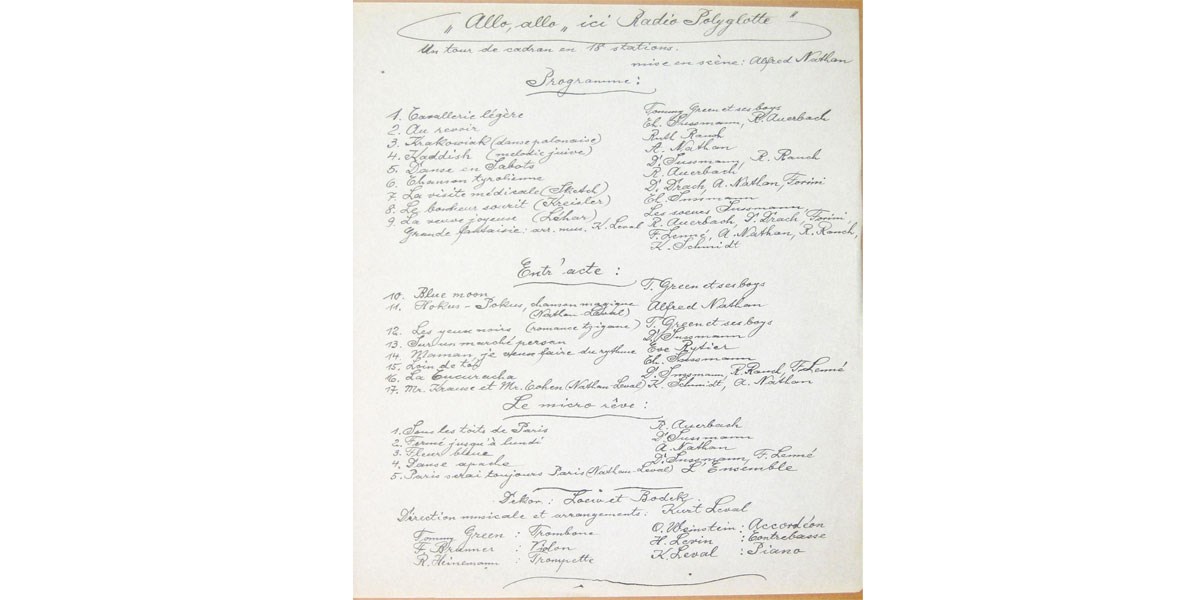 „Allo, allo„ ici Radio Polyglotte"
Un tour de cadran en 18 stations.
mise en scène: Alfred Nathan
Programme:
1. Cavallerie légère Tommy Green et ses boys
2. Au revoir Eh. Sussmann, R. Auerbach
3. Krakowiak (danse polonaise) Ruth Rauch
4. Kaddish (melodie juive) A. Nathan
5. Danse en Sabots D. Sussmann, R. Rauch
6. Chanson tyrolienne R. Auerbach
7. La visite médicale (Sketch) D. Drach, A. Nathan, Torini
8. Le bonheur sourit (Kreisler) Eh. Sussmann
9. La veuve joyeuse (Léhar) Les soeurs Sussmann,
Grande fantaisie: arr. mus. K. Leval R. Auerbach, D. Drach, Torini,
F. Lenné, A. Nathan, R. Rauch,
K. Schmidt
Entr'acte:
10. Blue moon T. Green et ses boys
11. Hokus-Pokus, chanson magique Alfred Nathan
(Nathan-Leval)
12. Les yeux noirs (romance tzigane) T. Green et ses boys
13. Sur un marché persan D. Sussmann
14. Maman, je veux faire du rythme Eve Rytier
15. Loin de toi Eh. Sussmann
16. La Cucuracha D. Sussmann, R. Rauch, F. Lenné
17. Mr. Krause et Mr. Cohen (Nathan-Leval) K. Schmidt, A. Nathan
Le micro rêve:
1. Sous les toits de Paris R. Auerbach
2. Fermé jusqu'à lundi D. Sussmann
3. Fleur bleue A. Nathan
4. Danse apache D. Sussmann, F. Lenné
5. Paris serai toujours Paris (Nathan-Leval) L'Ensemble
Dekor: Loew et Bodek.
Direction musicale et arrangements: Kurt Leval
Tommy Green : Trombone O. Weinstein : Accordéon
F. Brunner : Violon H. Levin : Contrebasse
R. Heinemann : Trompette K. Leval : Piano